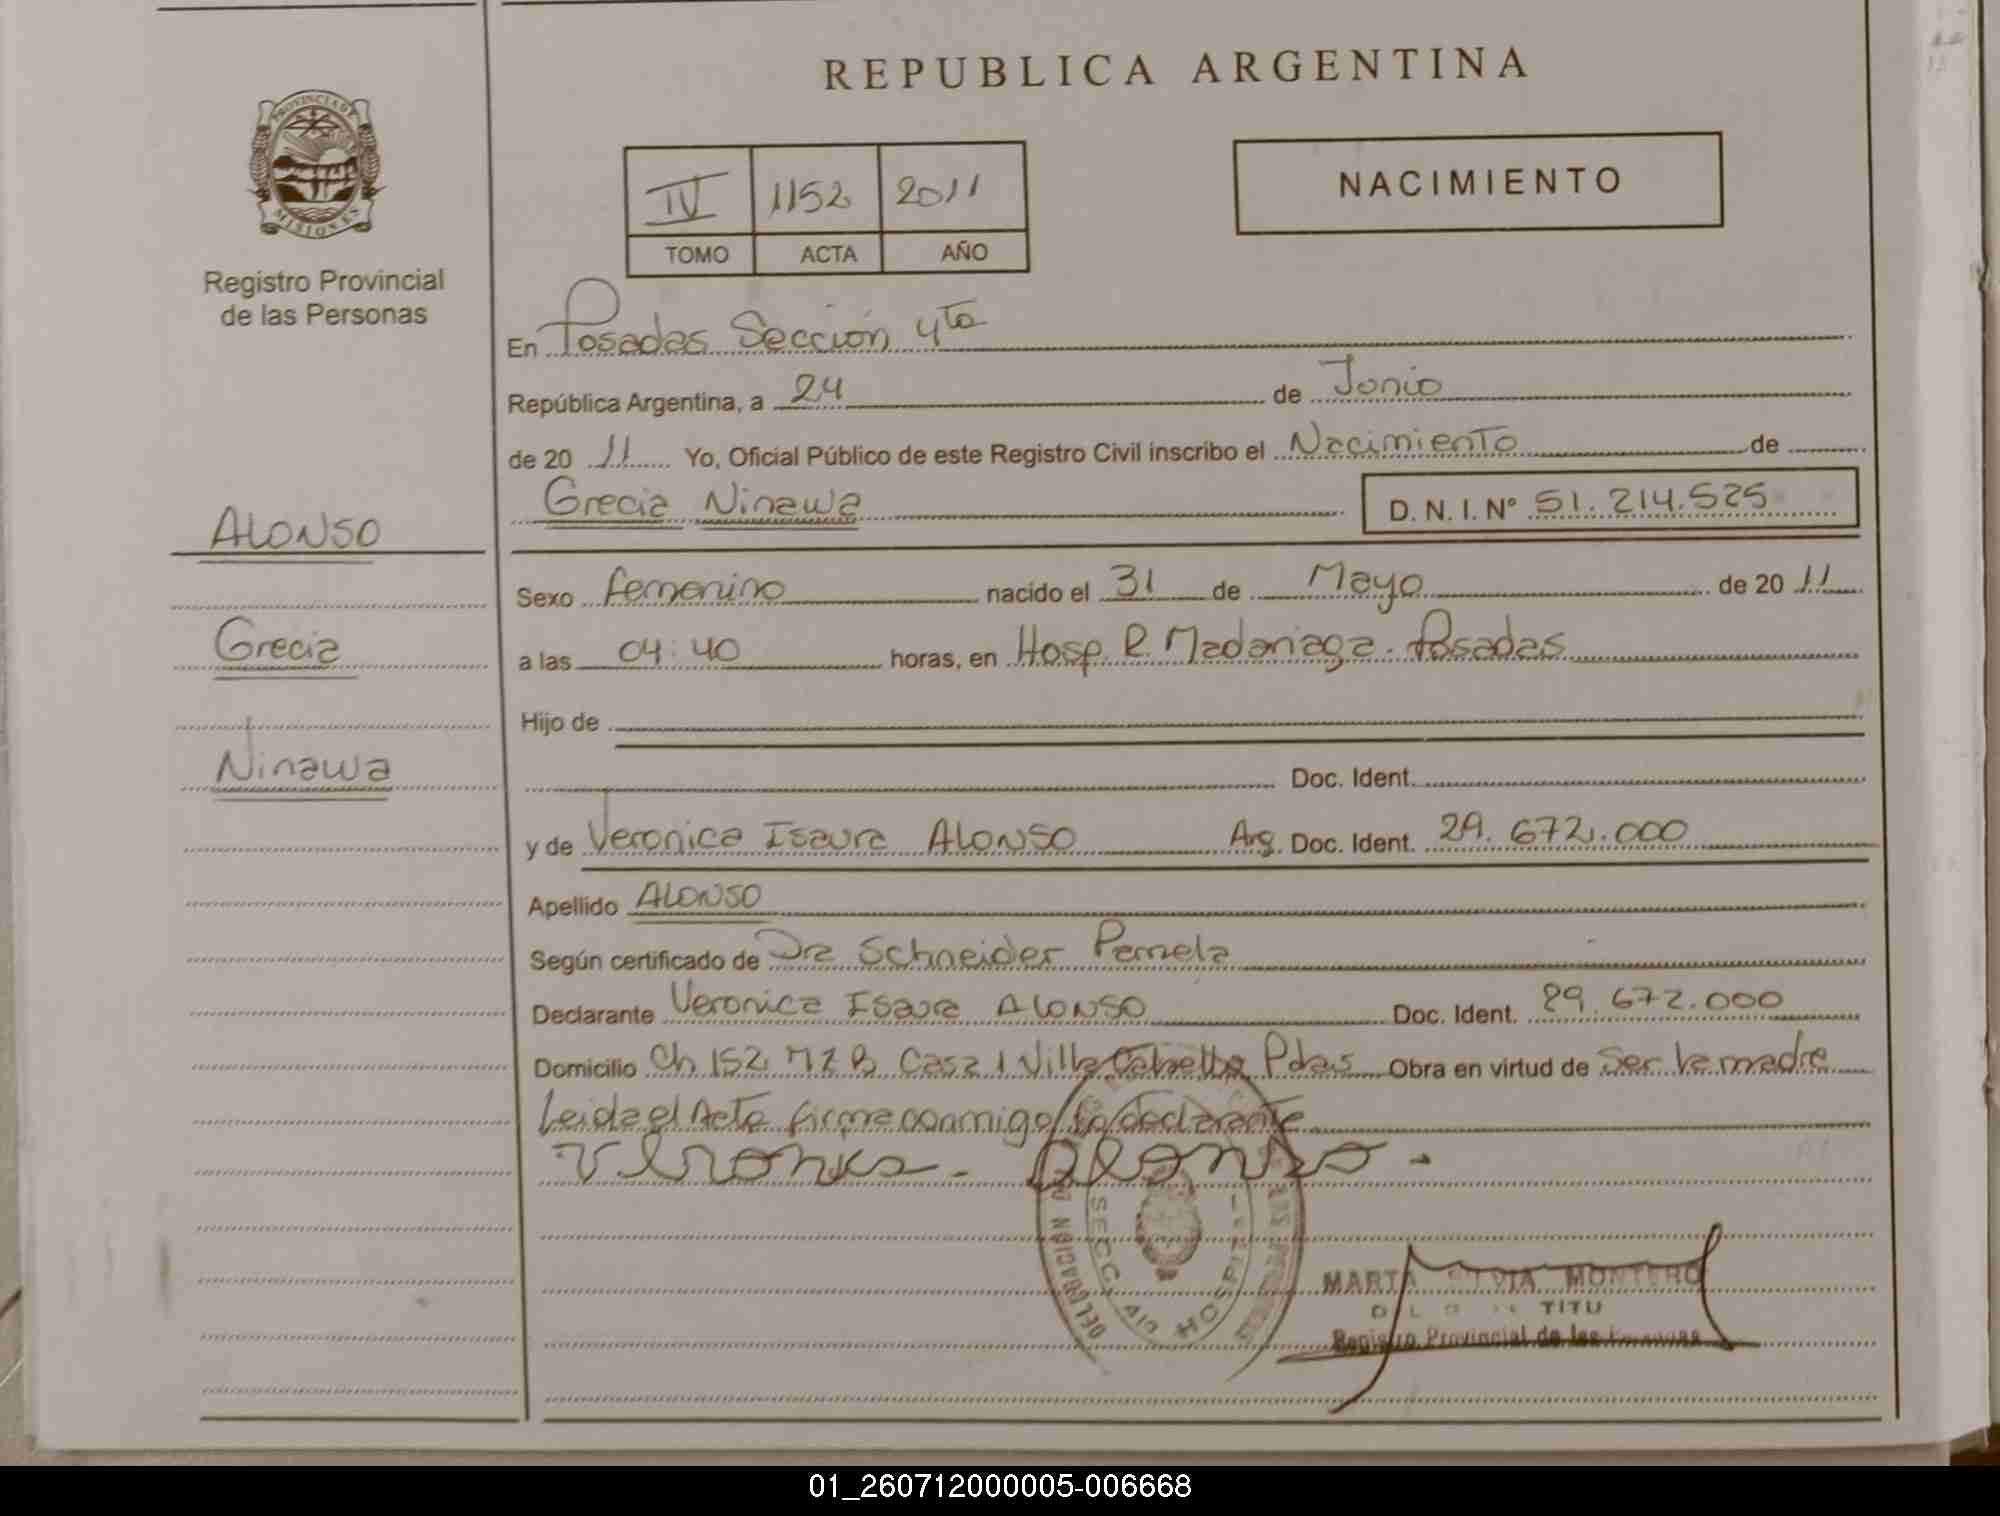 REPUBLICA ARGENTINA
PROVINCIA DE
MISIONES
Registro Provincial
de las Personas
IV 1152 2011
TOMO ACTA AÑO
NACIMIENTO
En Posadas Sección 4ta
República Argentina, a 24 de Junio
de 20 11 Yo, Oficial Público de este Registro Civil inscribo el Nacimiento de
Grecia Ninawa D. N. I. Nº 51.214.525
ALONSO
Grecia
Ninawa
Sexo femenino nacido el 31 de Mayo de 20 11
a las 04:40 horas, en Hosp. R. Madariaga - Posadas
Hijo de
Doc. Ident.
y de Veronica Isaura ALONSO Arg. Doc. Ident. 29.672.000
Apellido ALONSO
Según certificado de Dra Schneider Pamela
Declarante Veronica Isaura ALONSO Doc. Ident. 29.672.000
Domicilio Ch 152 MZ B Casa 1 Villa Cabello Pdas Obra en virtud de Ser la madre
Leida el Acta firma conmigo la declarante
Veronica - Alonso -
DELEGACION
SECC. HOSPITAL
MARTA SILVIA MONTERO
TITU
Registro Provincial de las Personas
01_260712000005-006668